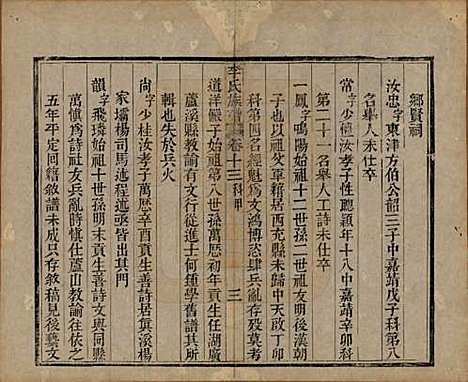 鄉賢祠
汝忠字東津方伯公韶三子中嘉靖戊子科第八
名舉人未仕卒
常字少檀汝孝子性聰穎年十八中嘉靖辛卯科
第二十一名舉人工詩未仕卒
一鳳字鳴陽始祖十二世孫二世祖友明後漢朝
子也以祖父軍籍居西充縣未歸中天啟丁卯
科第四名經魁為文鴻博恣肆兵亂存歿莫考
李氏族譜 卷十三 科甲 三
道洋 子始祖第八世孫萬歷初年貢生任湖廣
蘆溪縣教諭有文行從進士何鍾學舊譜其所
輯也失於兵火
尚字少桂汝孝子萬歷辛酉貢生善詩居箕溪楊
家壩楊司馬述程述亟皆出其門
韻字飛璘始祖十世孫明末貢生善詩文與同縣
萬慎為詩社友兵亂時慎仕蘆山教諭往依之
五年平定回籍敘譜未成只存敘稿見後藝文